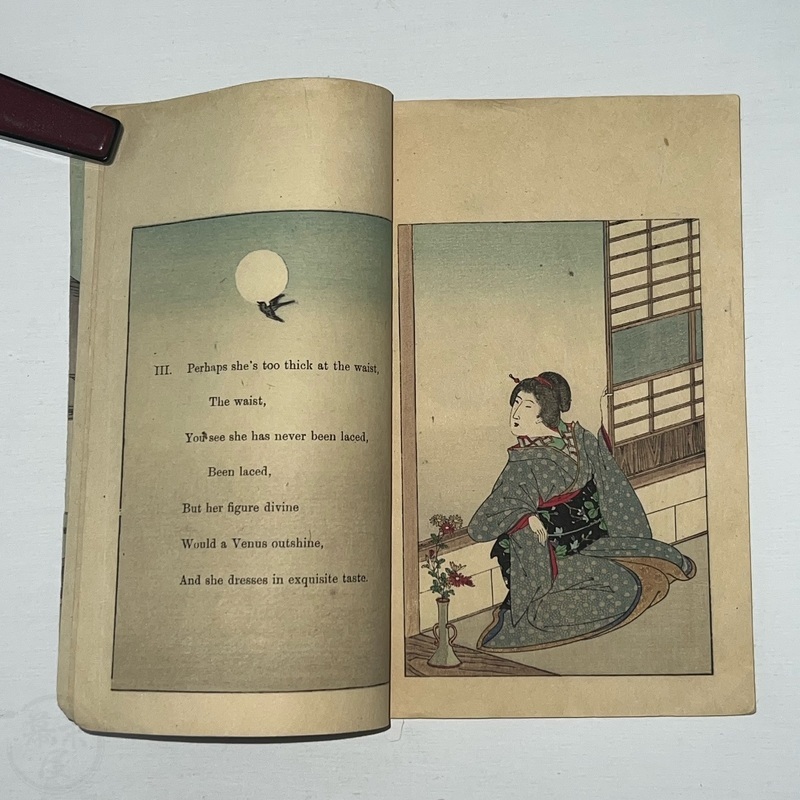 III. Perhaps she's too thick at the waist,
The waist,
You see she has never been laced,
Been laced,
But her figure divine
Would a Venus outshine,
And she dresses in exquisite taste.